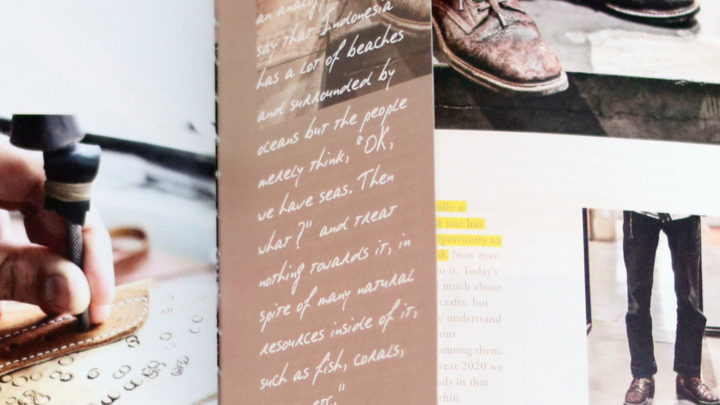 an analogy
say that Indonesia
has a lot of beaches
and surrounded by
oceans but the people
merely think, "OK,
we have seas. Then
what?" and treat
nothing towards it, in
spite of many natural
resources inside of it,
such as fish, corals,
etc."
ally a
t just has
pportunity to
d. Now may
o it. Today's
l much about
crafts, but
y understand
ous
among them.
year 2020 we
nds in that
thin.